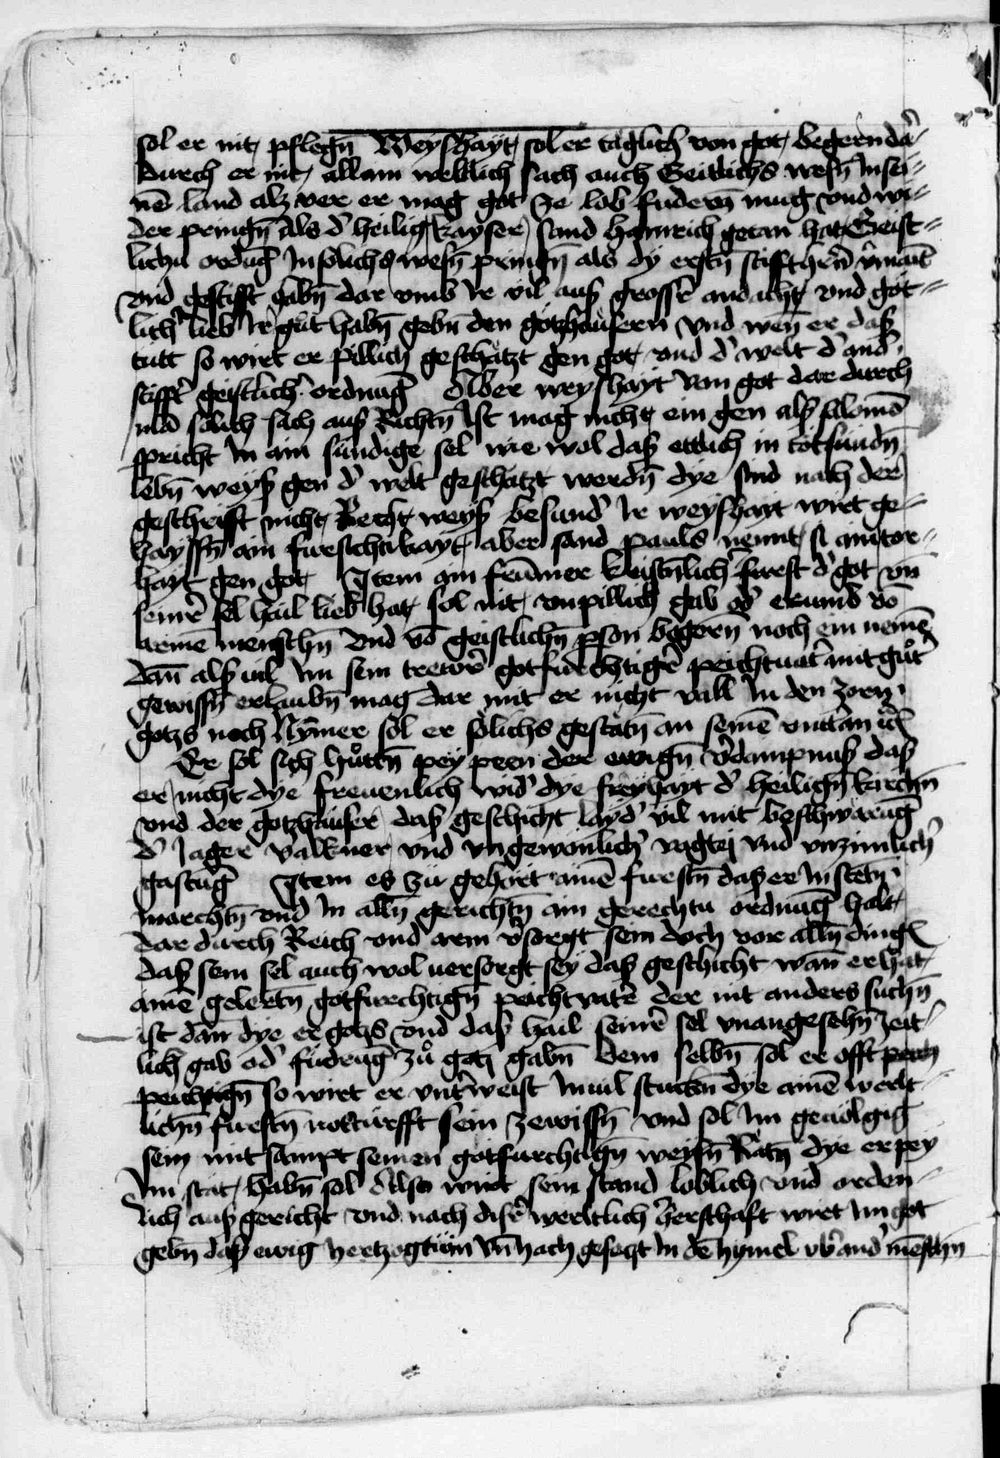 sol er nit pflegn̄ Weyshayt sol er täglich von got begern da'
durch er nit allain weltlich sach auch Geitlichs wesn̄ In sei=
nē land alz ver er mag got Ze lob fudern̄ mug vnd wi=
der pringn̄ Als d' heilig kayser sand Hainrich getan hat Geist=
lichn ordūg In solichs wesn̄ pringn̄ als dy erstn̄ stiffter
vnd gestifft habn̄ dar vmb Ir vil auß grosser andacht vnd göt=
lich' lieb Ir gůt habn̄ gebn̄ den gotzhäusern vnd wen̄ er daß
tutt so wirt er pillich geschätzt gen got vnd d' welt d' and'
stifft' geistlich' ordnūg Aber weyshayt von got dar durch
man solich sach auß Richtn̄ Ist mag nicht ein gen alß salomō
spricht In ain sündige sel wie wol daß etlich in totsündn̄
lebn̄ weyß gen d' welt geschätzt werdn̄ dye sind nach der
geschrifft nicht Recht weyß besund' Ir weyshayt wirt ge=
hayssn̄ ain fursichtikayt aber sand pauls nennt si ain tor=
hayt gen got Item ain frumer kristnlich furst d' got vn̄
seinr̄ sel hail lieb hat sol nit vnpillich gab od' vō
armē menschn̄ vnd vō geistlichn̄ pson begern noch ein nemē
dan̄ alß vil Im sein trewr̄ gotfurchtigr̄ peichtuatr̄ mit gůtr̄
gewissn̄ erlaubn̄ mag dar mit er nicht vall In den zorn
gotzs noch Nymer sol er solichs gestatn̄ an seinē
Er sol sich hůttn̄ pey peen der ewign̄ v'dampnuß daß
er nicht dye freuenlich wid' dye freyhayt d' heilign̄ kirchn̄
vnd der gotzhäuser daß geschicht layd' vil mit beschwärūg
d' Jager valkner vnd vngewonlich' vnd vnzimlich'
gastūg Item es zu gehört ainē furstn̄ daß er In stetn̄
märchtn̄ vnd In alln̄ gerichtn̄ ain gerechtn ordnūg halt
dar durch Reich vnd arm v'sorgt sein doch vor alln̄ dingn̄
daß sein sel auch wol versorgt sey daß geschicht wan̄ er hat
ainē gelertn̄ gotfurchtign̄ peichtvatr̄ der nit anders suchn̄
ist dan̄ dye er gotzs vnd daß hail seinr̄ sel vnangesehn̄ zeit
lich gab od' fudrūg zů gabn̄ Dem selbn̄ sol er offt
peichtign̄ so wirt er vnt'weist In uil stuckn̄ dye ainē welt=
lichn̄ furstn̄ notturfft sein zewissn̄ vnd sol Im geuölgig
sein mit sampt seinen gotfurchtign̄ weysn̄ Rätn̄ dye er pey
Im stät habn̄ sol Also wirt sein stand loblich vnd orden=
lich auß gericht vnd nach disr̄ werltlich herschaft wirt Im got
gebn̄ daß ewig hertzogtum vn̄ hoch gesetzt In dē hymel vb' and' mēschn̄